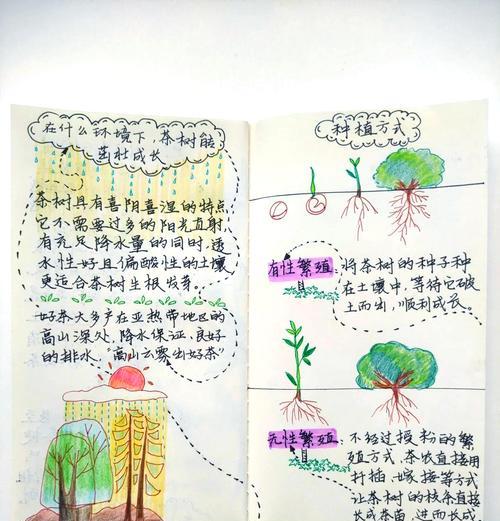 在什么环境下，茶树能
茁壮成长
茶树具有喜阴喜湿的特点
它不需要过多的阳光直射
有充足降水量的同时，透
水性好且偏酸性的土壤
更适合茶树生根发芽。
好茶大多产在亚热带地区的
高山深处，降水保证，良好
的排水，“高山云雾出好茶”
种植方式
有性繁殖：将茶树的种子种
在土壤中，等待它破
土而出，顺利成长。
无性繁殖：不经过授粉的繁
殖方式，茶农直接用
扦插、嫁接等方式
让茶树的枝条直接
长成茶苗，进而长成